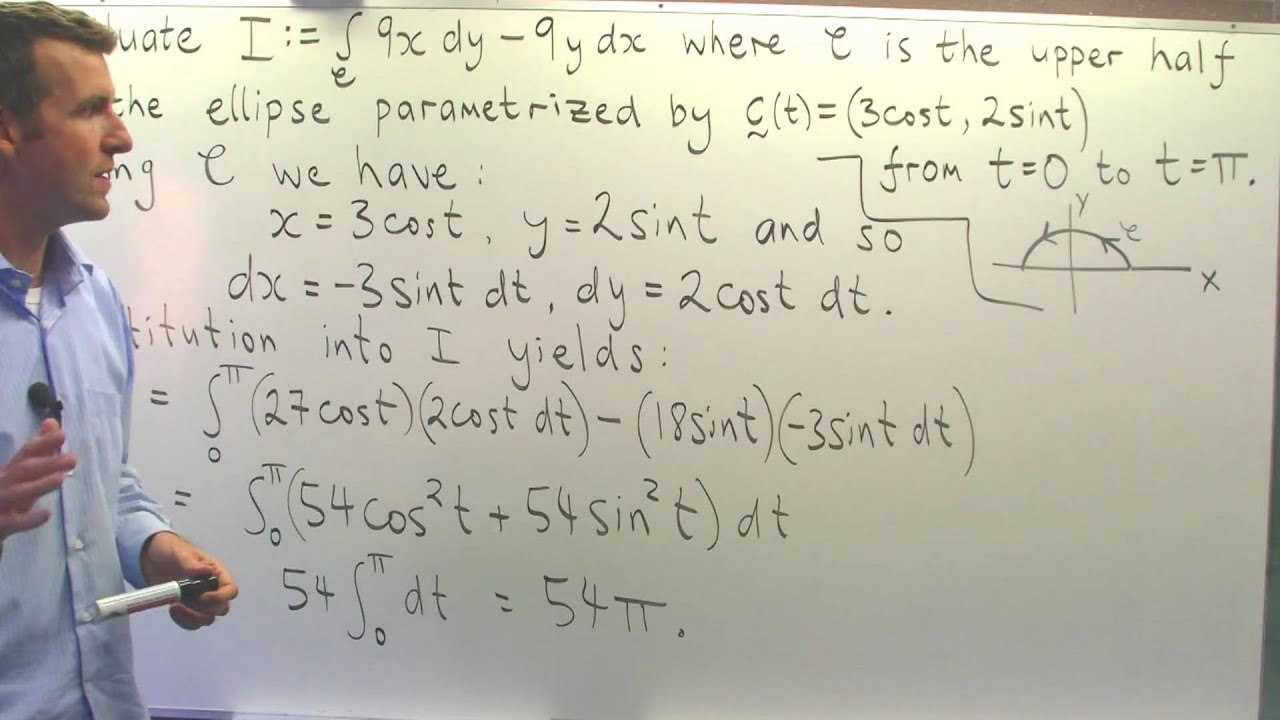 uate I := ∫_C 9x dy − 9y dx where C is the upper half
the ellipse parametrized by c(t) = (3cost, 2sint)
from t=0 to t=π.
ng C we have:
x = 3cost, y = 2sint and so
y
C
x
dx = -3sint dt, dy = 2cost dt.
titution into I yields:
= ∫₀^π (27cost)(2cost dt) − (18sint)(-3sint dt)
= ∫₀^π (54cos²t + 54sin²t) dt
54 ∫₀^π dt = 54π.